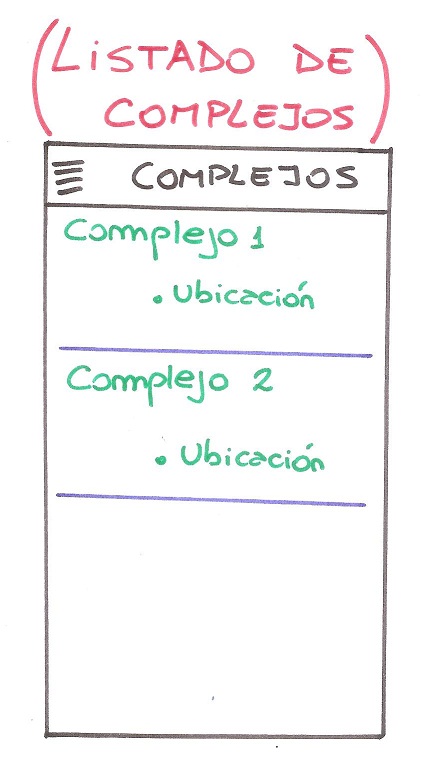 (LISTADO DE
COMPLEJOS)
COMPLEJOS
Complejo 1
• Ubicación
Complejo 2
• Ubicación